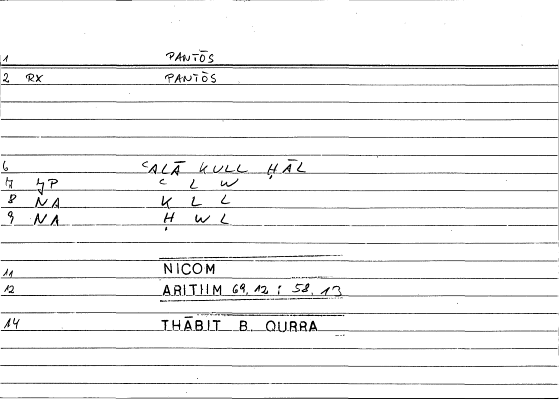 1 PANTŌS
2 RX PANTŌS
6 ʿALĀ KULL ḤĀL
7 JP ʿ L W
8 NA K L L
9 NA Ḥ W L
11 NICOM
12 ARITHM 69,12 ; 58,13
14 THĀBIT B. QURRA